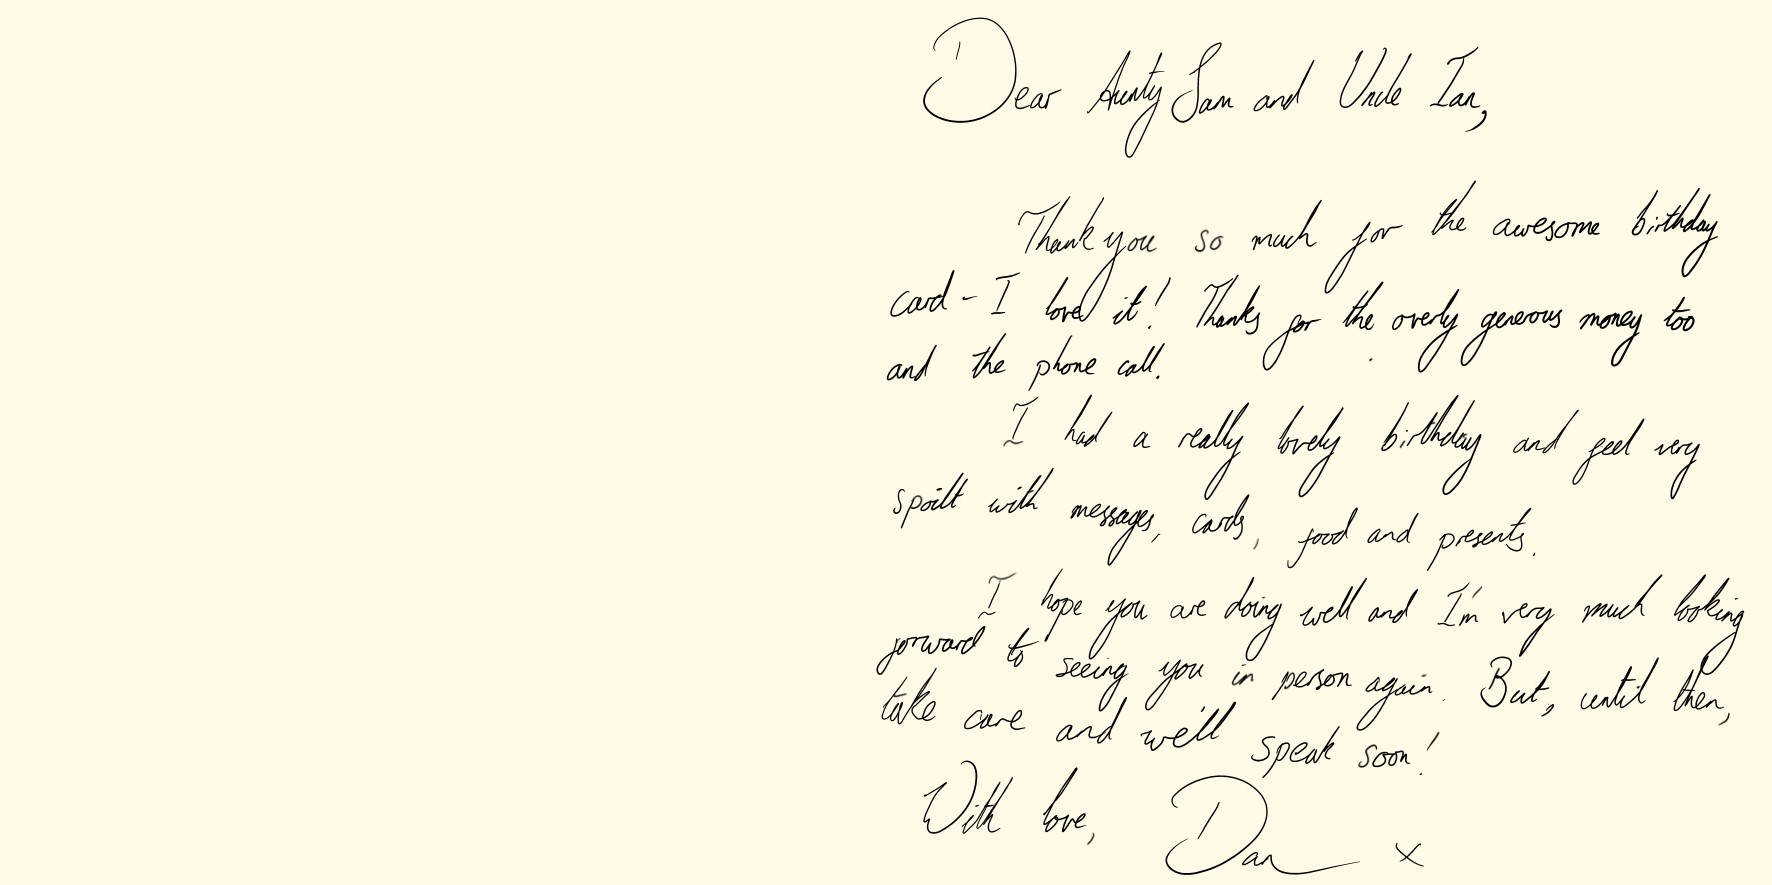 Dear Aunty Sam and Uncle Ian,
Thank you so much for the awesome birthday
card - I loved it! Thanks for the overly generous money too
and the phone call.
I had a really lovely birthday and feel very
spoilt with messages, cards, food and presents.
I hope you are doing well and I'm very much looking
forward to seeing you in person again. But, until then,
take care and we'll speak soon!
With love, Dan x